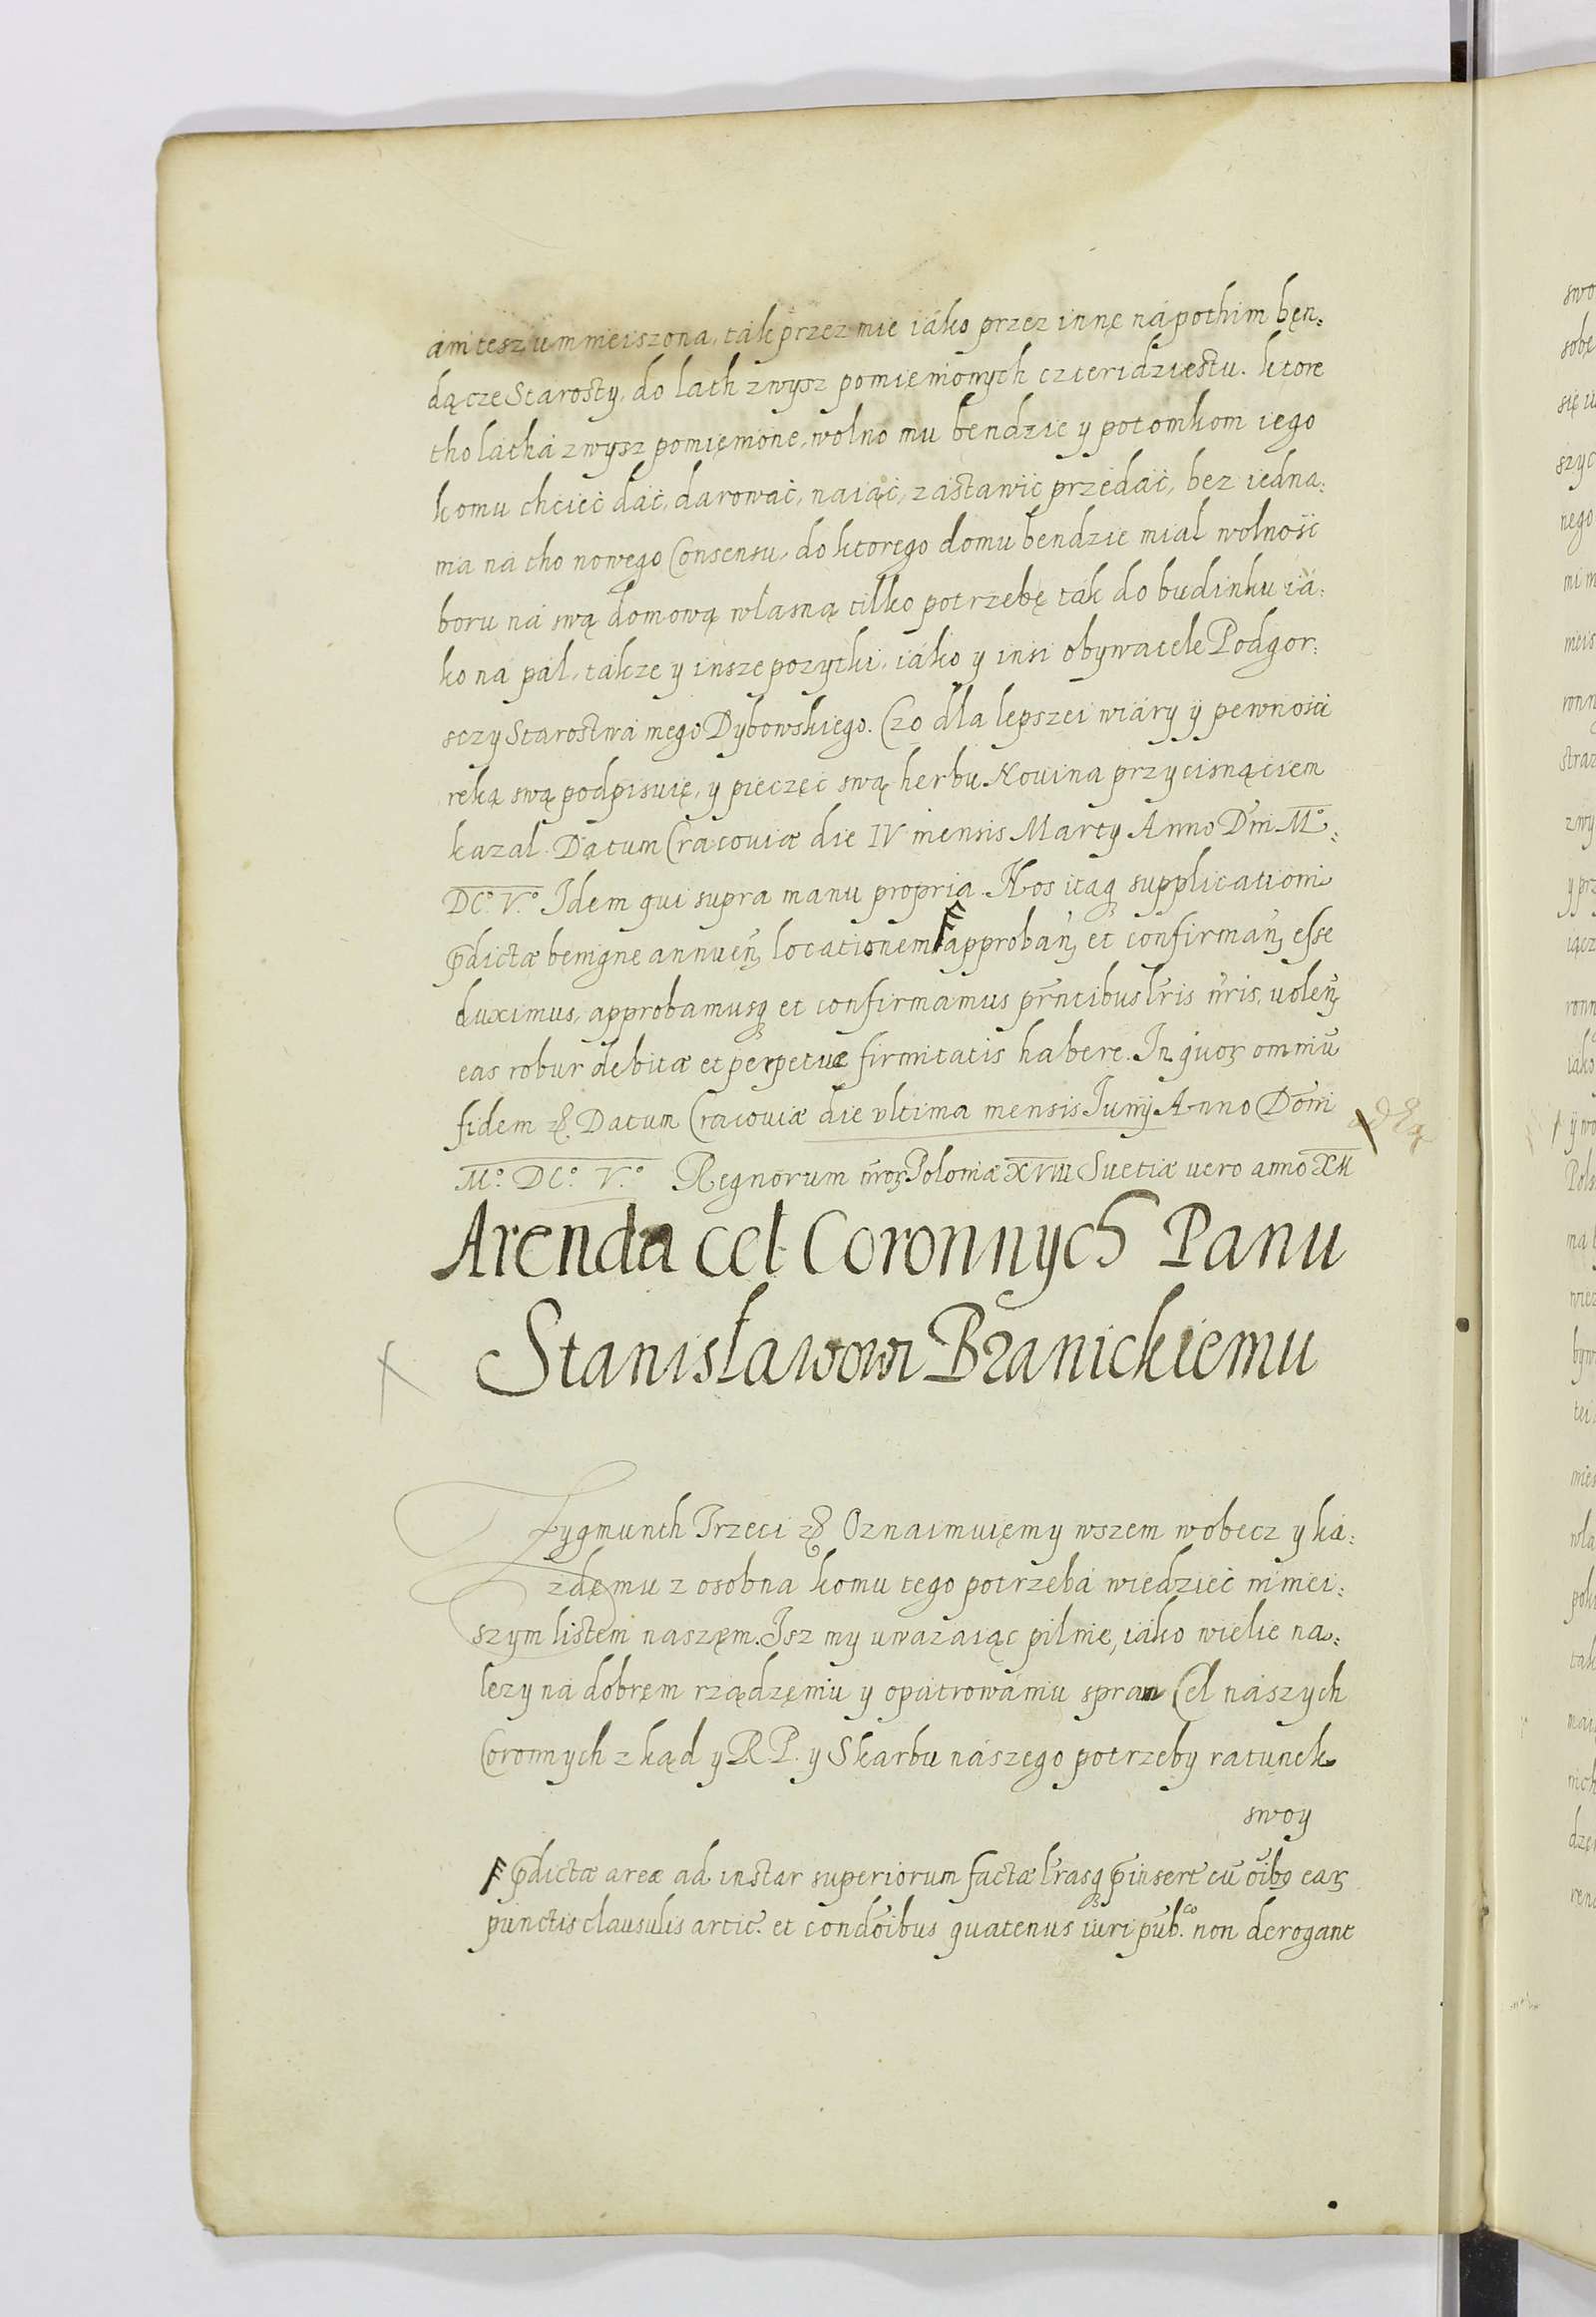 ani tesz ummieiszona, ták przez mie iáko przez innę nápothim bęn:
dącze Starosty, do lath zwysz pomięnionych czteridziestu. ktore
tho lathá zwysz pomięnione, wolno mu bendzie y potomkom iego
komu chcieć dáć, dárowáć, naiąć, zástáwić przedáć, bez iedna:
nia ná tho nowego Consensu, do ktorego domu bendzie miał wolność
boru ná swą domową własną tilko potrzebę ták do budinku iá:
ko ná pál, tákze y insze pozytki, iáko y insi obywatele Podgor:
sczy Starostwá mego Dybowskiego. Czo dla lepszei wiáry y pewności
ręką swą podpisuię, y pieczęć swą herbu Nouina przycisnąciem
kazał. Datum Cracouiæ die IV mensis Martij Anno Dni Mº:
DCº. Vº. Idem qui supra manu propria. Nos itaq supplicationi
pdictæ benigne annueñ locationem approbañ et confirmañ esse
duximus, approbamusq et confirmamus pr̃ntibus lr̃is nr̃is, uoleñ
eas robur debitæ et perpetuæ firmitatis habere. In quoꝝ omniũ
fidem ꝛc. Datum Cracouiæ die vltima mensis Junij Anno Domi
Mº. DCº. Vº. Regnorum nr̃oꝝ Poloniæ XVIII Suetiæ uero anno XII
Arenda cel Coronnych Panu
Stanisławowi Branickiemu
Zygmunth Trzeci ꝛc Oznaimuięmy wszem wobecz y ká:
zdęmu z osobna komu tego potrzebá wiedzieć ninieі:
szym listem naszęm. Isz my uwazaiąc pilnie, iáko wielie na:
lezy ná dobręm rządzęniu y opátrowániu spraw Cel nászych
Coronnych zkąd y R P. y Skarbu nászego potrzeby rátunek
swoy
pdictæ areæ ad instar superiorum factæ lr̃asq p̃insert̃ cũ oĩbq eaꝝ
punctis clausulis artic̃. et condõibus quatenus iuri pub.co non derogant